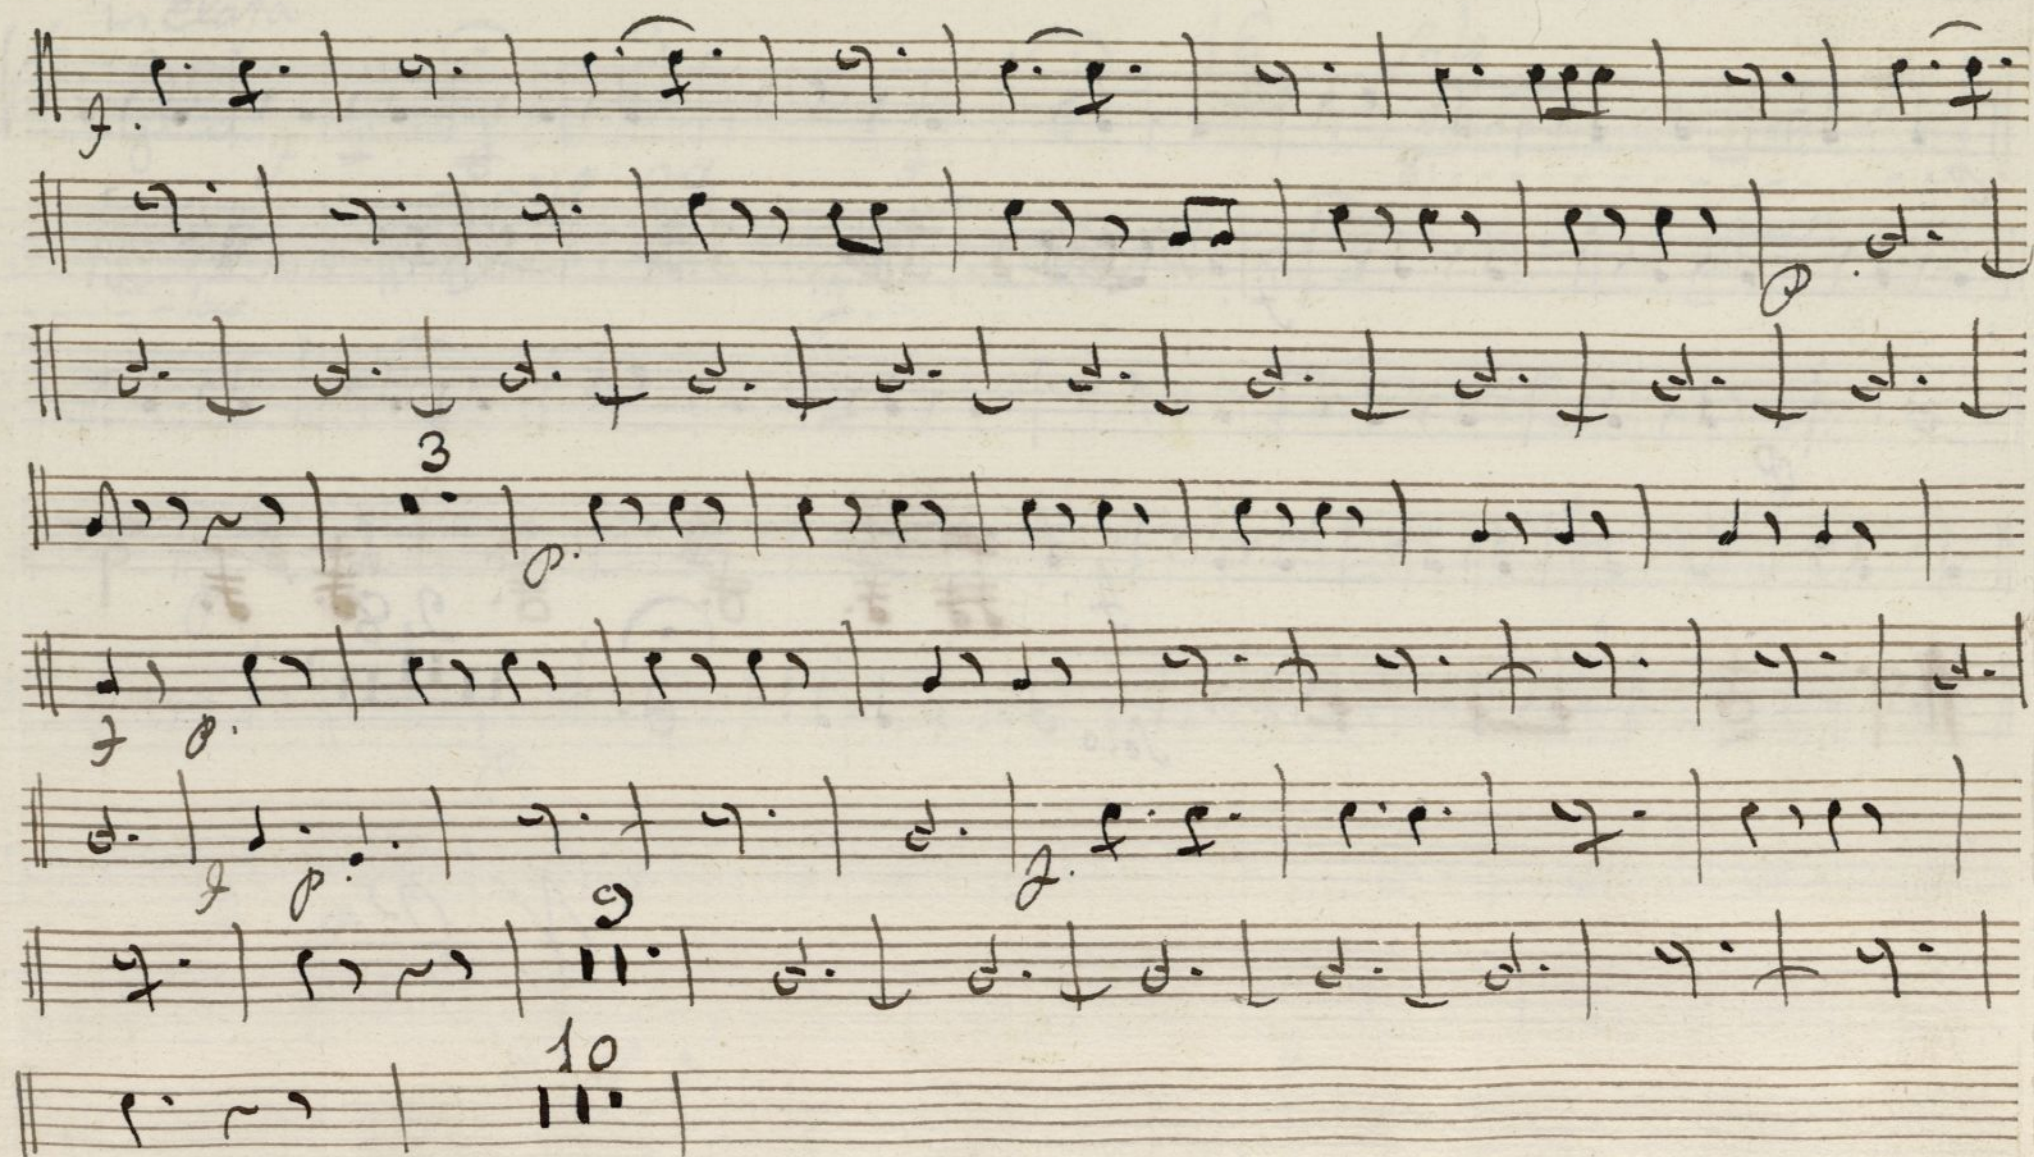 f.
p.
3
p.
f p.
f p. f.
9
10